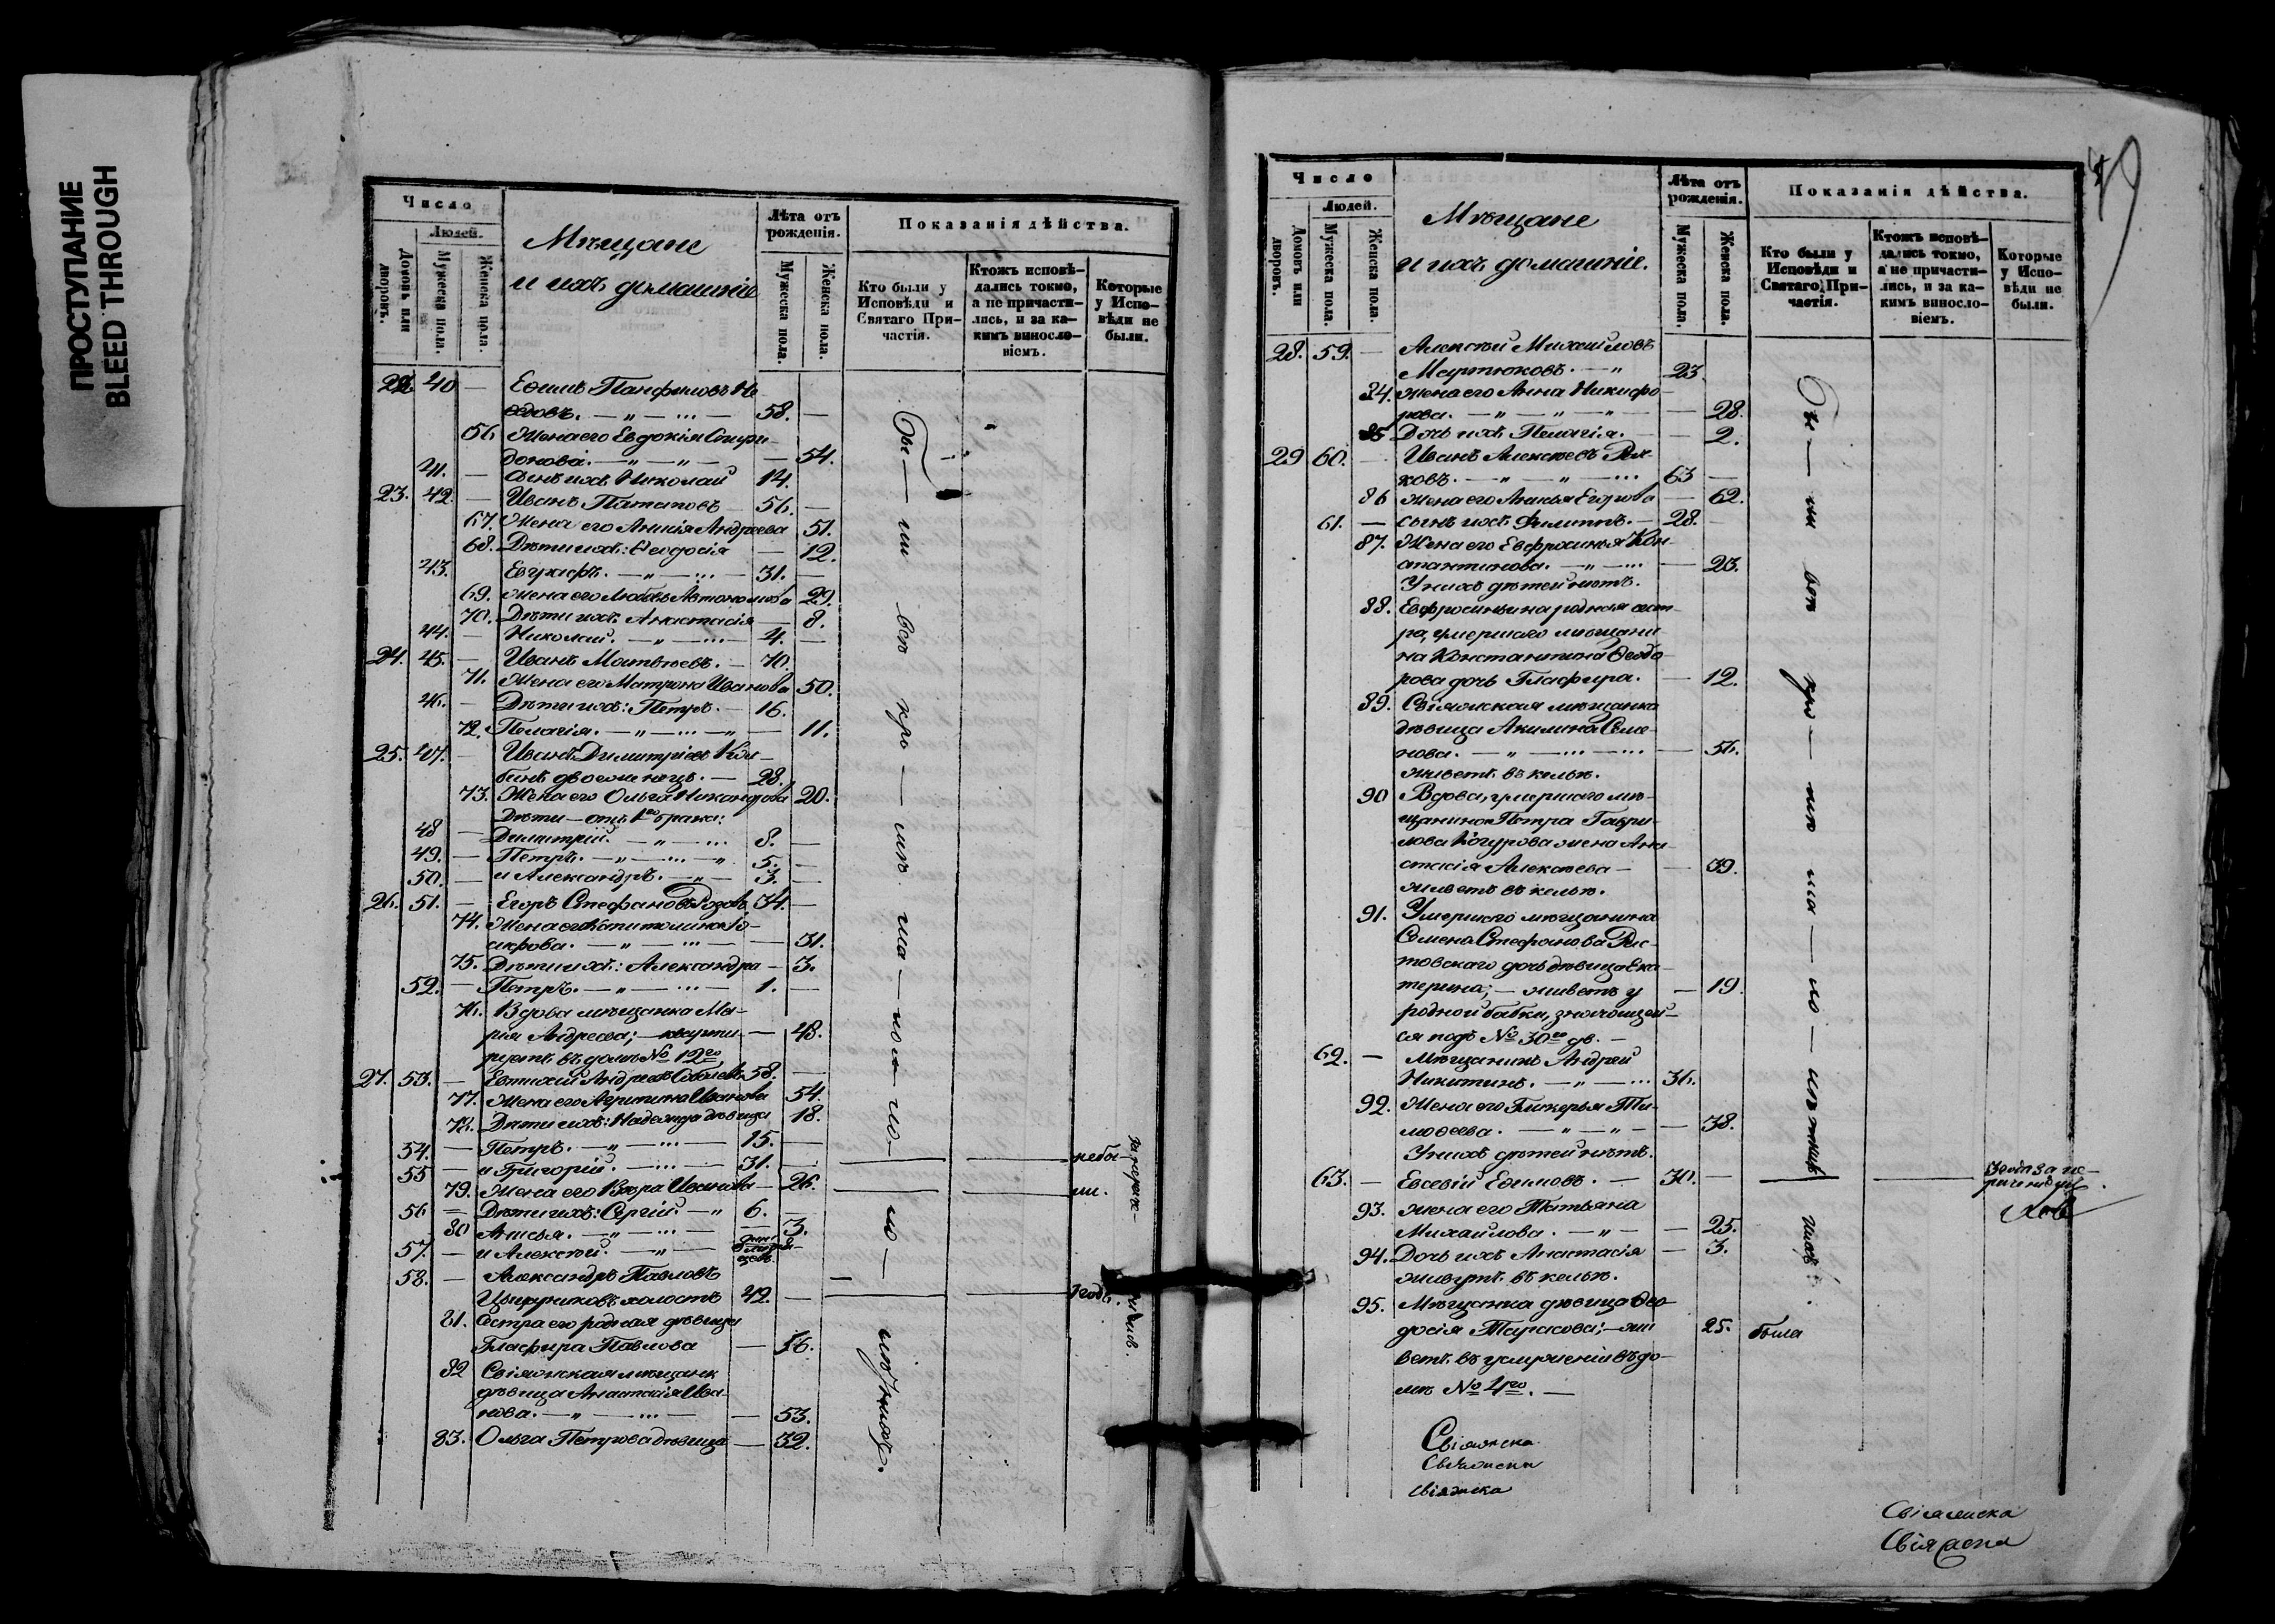 ПРОСТУПАНИЕ
BLEED THROUGH
Число
Людей.
Домовъ или дворовъ.
Мужеска пола.
Женска пола.
Мѣщане
и ихъ домашніе
Лѣта отъ рожденія.
Мужеска пола.
Женска пола.
Показанія дѣйства.
Кто были у Исповѣди и Святаго Причастія.
Ктожъ исповѣдались токмо, а не причастились, и за какимъ винословіемъ.
Которые у Исповѣди не были.
22. 40 — Ефимъ Панфиловъ
58. —
56 Жена его Евдокія Спири-
донова. — „ — „ — — 54.
41. — Сынъ ихъ Николай 14.
23. 42. — Иванъ Потаповъ — 56. —
67. Жена его Аннія Андреева 51.
68. Дѣти ихъ: Ѳеодосія — 12.
43. Евграфъ. — „ — ... — 31. —
69. Жена его Любовь Автономова 29.
70. Дѣти ихъ Анастасія — 8.
44. — Николай. — „ — ... — 4. —
24. 45. — Иванъ Матвѣевъ. — 70.
71. Жена его Матрона Иванова 50.
46. — Дѣти ихъ: Петръ. — 16.
72. Пелагія. — „ — ... — „ — 11.
25. 47. — Иванъ Димитріевъ
двоеженецъ. — 28.
73. Жена его Ольга Никанорова 20.
Дѣти — отъ 1го брака:
48 — Димитрій. — „ — ... 8. —
49. — Петръ. — „ — ... — „ 5. —
50. — и Александръ. — „ — 3. —
26. 51. — Егоръ Стефановъ Розовъ 34. —
74. Жена его Капитолина
— „ — ... — — 31.
75. Дѣти ихъ: Александра — 3.
52. — Петръ. — „ — ... — 1. —
76. Вдова мѣщанка Ма-
рія Андреева; — кварти- — 48.
руетъ въ домѣ № 12го
27. 53. — Евтихій Андреевъ Соболевъ 58. —
77. Жена его Агрипина Иванова 54.
78. Дѣти ихъ: Надежда дѣвица 18.
54. — Петръ. — „ — ... — 15. —
55 — и Григорій. — ... — 31. — небы-
79. Жена его Вѣра Иванова — 26. ли.
56 — Дѣти ихъ: Сергій — „ 6. —
80 Анисья. — „ — ... — — 3.
57. — и Алексѣй. — „ —
58. — Александръ Павловъ
Цыфриковъ холостъ 42. — 1 годъ.
81. Сестра его родная дѣвица
Глафира Павлова — 56.
82 Свіяжская мѣщанк
дѣвица Анастасія Ива-
нова. — „ — ... — — 53.
83. Ольга Петрова дѣвица — 32.
Бы — ли всѣ кро — мѣ
Число
Людей.
Домовъ или дворовъ.
Мужеска пола.
Женска пола.
Мѣщане
и ихъ домашніе.
Лѣта отъ рожденія.
Мужеска пола.
Женска пола.
Показанія дѣйства.
Кто были у Исповѣди и Святаго Причастія.
Ктожъ исповѣдались токмо, а не причастились, и за какимъ винословіемъ.
Которые у Исповѣди не были.
28. 59. — Алексѣй Михайловъ
Мартюковъ. — „ 23.
84. жена его Анна Никифо-
рова. — „ — „ — „ — — 28.
85 Дочь ихъ Пелагія. — — 2.
29 60. — Иванъ Алексѣевъ Ря-
ховъ. — „ — „ — ... 63 —
86 жена его Анисья Егорова — 62.
61. — сынъ ихъ Филиппъ. — 28. —
87. Жена его Евфросинья Кон-
стантинова. — „ — ... — 23.
У нихъ дѣтей нѣтъ.
88. Евфросиньина родная сест-
ра, умершаго мѣщани-
на Константина Ѳеодо-
рова дочь Глафира. — — 12.
89. Свіяжская мѣщанка
дѣвица Акилина Семе-
нова. — „ — ... — ... — — 56.
живетъ въ кельѣ.
90 Вдова, умершаго мѣ-
щанина Петра Гаври-
лова Когурова жена Ана-
стасія Алексѣева — — 39.
живетъ въ кельѣ.
91. Умершаго мѣщанина
Семена Стефанова
дочь дѣвица Ека-
терина; — живетъ у — 19.
родной бабки, значащей-
ся подъ № 30мъ дв. —
62. — Мѣщанинъ Андрей
Никитинъ. — „ — ... 36.
92. Жена его Гликерья Ти-
моѳеева. — „ — „ — — 38.
У нихъ дѣтей нѣтъ.
63. — Евсевій Ефимовъ. — 30. —
93. жена его Татьяна
Михайлова. — „ — — 25.
94. Дочь ихъ Анастасія — 3.
живутъ въ кельѣ.
95. Мѣщанка дѣвица Ѳео-
досія Тарасова; — жи- 25. была
ветъ въ до-
мѣ № 4го. —
Бы — ли всѣ кро — мѣ
Свіяжска
Свіяжска
Свіяжска
Свіяжска